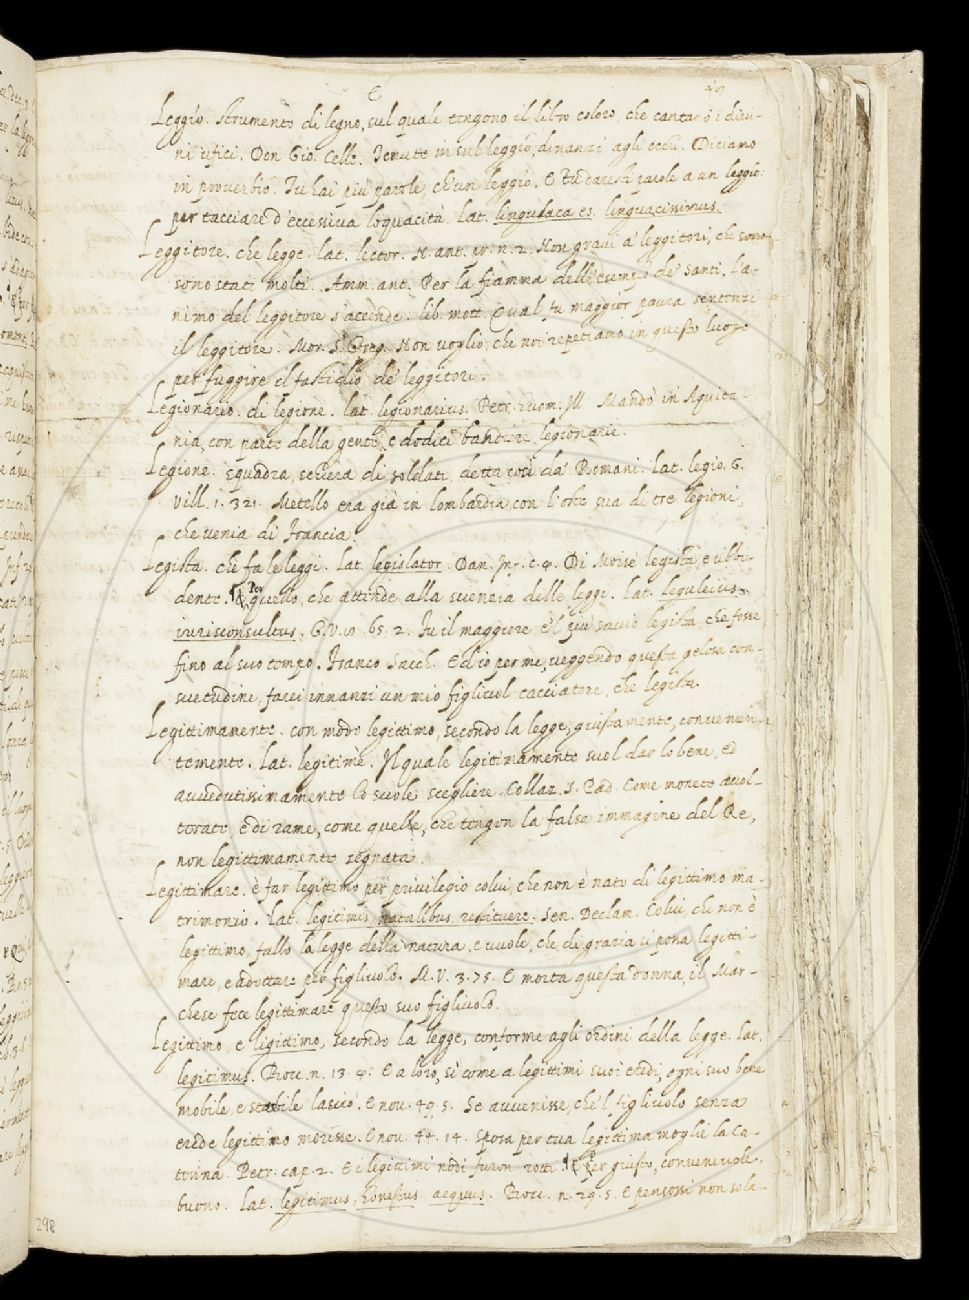 Leggio. strumento di legno, sul quale tengono il libro coloro, che cantano i diui-
ni ufici. Don Gio. Cell. Tenute in sul leggio, dinanzi agli occhi. Diciamo
in prouerbio. Tu hai più parole, ch'un leggio. E tu daresti parole a un leggio:
per tacciare d'eccessiua loquacità. Lat. linguaca es. linguacissimus.
Leggitore. che legge. lat. lector. N. ant. pr. n. 2. Non graui a' leggitori, che
sono stati molti. Amm. ant. Per la fiamma dell'esempio de' santi. l'a-
nimo del leggitore s'accende. lib. mott. Qual fu maggior paura sentenzi
il leggitore. Mor. S. Greg. Non voglio, che noi repetiamo in questo luogo
per fuggire il fastidio de' leggitori.
Legionario. di legione. lat. legionarius. Petr. uom. ill. Mandò in Aquita-
nia, con parte della gente, e dodici bandiere legionarie.
Legione. squadra, schiera di soldati, detta così da' Romani. lat. legio. G.
Vill. 1. 32. Metello era già in lombardia con l'oste sua di tre legioni,
che venia di Francia.
Legista. che fa le leggi. lat. legislator. Dan. Inf. c. 4. Di Moisè legista, e ubbi-
dente. Per quello, che attende alla scienzia delle leggi. lat. leguleius
iurisconsultus. G. V. 10 65. 2. Fu il maggiore e 'l più sauio legista, che fosse
fino al suo tempo. Franco Sacch. Ed io per me, ueggendo questa gelosa con-
suetudine, farei innanzi un mio figliuol cacciatore, che legista.
Legittimamente. con modo legittimo, secondo la legge, giustamente, conuenien-
temente. lat. legitimè. Il quale legitimamente suol dar lo bene, ed
auuedutissimamente lo suole scegliere. Collaz. S. Pad. Come monete auol-
terate, e di rame, come quelle, che tengon la falsa immagine del Re,
non legittimamente segnata.
Legittimare. è far legittimo per priuilegio colui, che non è nato di legittimo ma-
trimonio. lat. legitimis natalibus restituere. Sen. Declam. Colui, che non è
legittimo, fallo la legge della natura, e uuole, che di grazia si possa legitti-
mare, e adottare per figliuolo. M. V. 3. 75. E morta questa donna, il Mar-
chese fece legittimare questo suo figliuolo.
Legittimo, e ligittimo, secondo la legge, conforme agli ordini della legge. lat.
legitimus. Bocc. n. 13. 4. E a loro, si come a legittimi suoi eredi, ogni suo bene
mobile, e stabile lasciò. E nou. 49. 5. Se auuenisse, che 'l figliuolo senza
erede legittimo morisse. E nou. 44. 14. Sposa per tua legittima moglie la Ca-
terina. Petr. cap. 2. E i legittimi nodi furon rotti. Per giusto, conueneuole,
buono. lat. legitimus, honestus aequus. Bocc. n. 29. 5. E pensossi non sola-
298